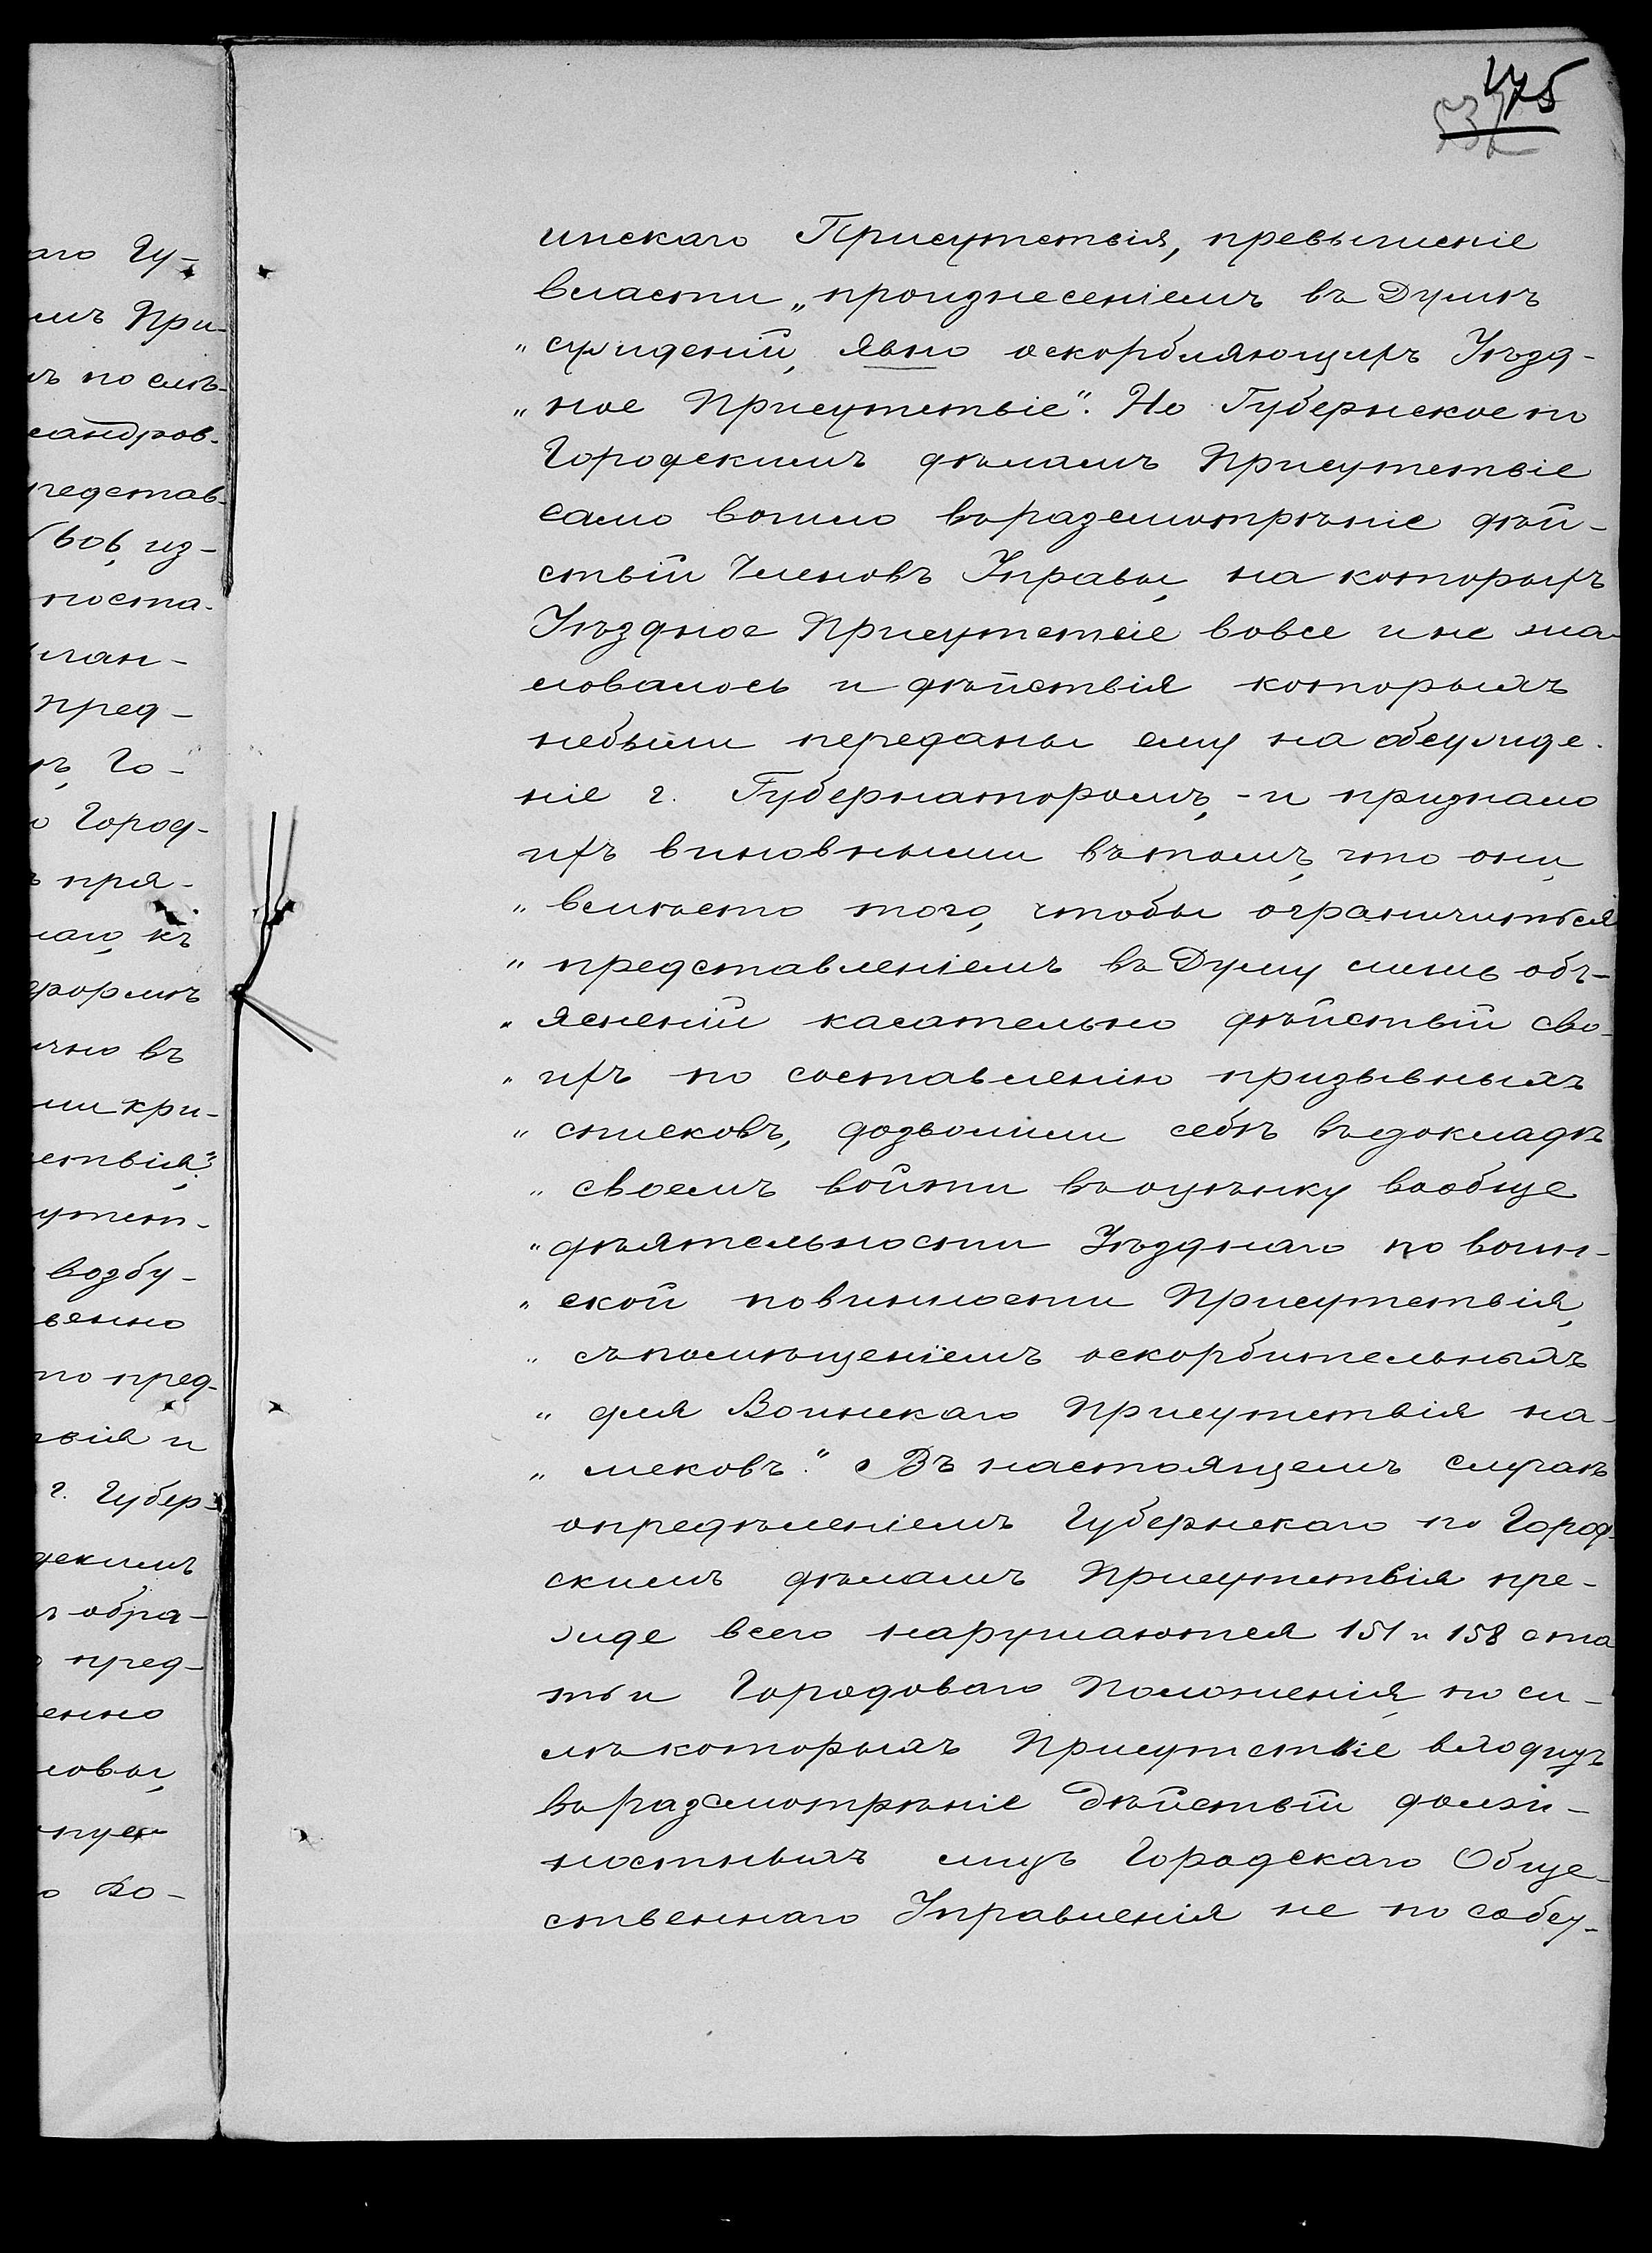 475
532
инскаго Присутствія, превышеніе
власти „произнесеніемъ въ Думѣ
„сужденій, явно оскорбляющихъ Уѣзд-
„ное Присутствіе". Но Губернское по
Городскимъ дѣламъ Присутствіе
само вошло въ разсмотрѣніе дѣй-
ствій Членовъ Управы, на которыхъ
Уѣздное Присутствіе вовсе и не жа-
ловалось и дѣйствія которыхъ
небыли переданы ему на обсужде-
ніе г. Губернаторомъ, - и признало
ихъ виновными въ томъ, что они,
„вмѣсто того, чтобы ограничиться
„представленіемъ въ Думу лишь объ-
„ясненій касательно дѣйствій сво-
„ихъ по составленію призывныхъ
„списковъ, дозволили себѣ въ докладѣ
„своемъ войти въ оцѣнку вообще
„дѣятельности Уѣзднаго по воин-
„ской повинности Присутствія,
„съ помѣщеніемъ оскорбительныхъ
„для Воинскаго Присутствія на-
„мековъ." Въ настоящемъ случаѣ
опредѣленіемъ Губернскаго по Город-
скимъ дѣламъ Присутствія пре-
жде всего нарушаются 151 и 158 ста
тьи Городоваго Положенія, по си-
лѣ которыхъ Присутствіе входитъ
въ разсмотрѣніе дѣйствій долж-
ностныхъ лицъ Городскаго Обще-
ственнаго Управленія не по собсу-
аго Гу-
При-
по слѣ-
сандров-
редстав-
из-
поста-
пред-
Го-
Город-
пря-
къ
формѣ
въ
кри-
ствія."
возбу-
по пред-
и
г. Губер-
обра-
пред-